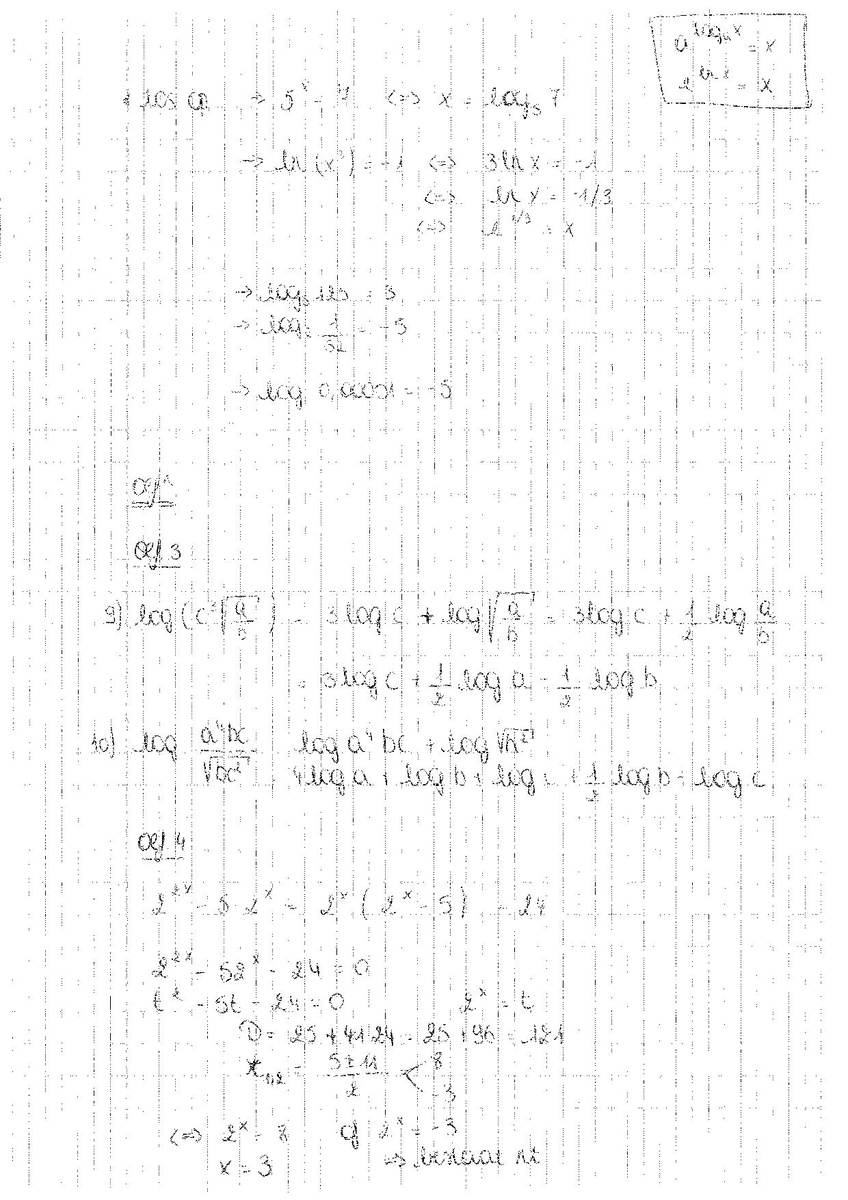 a^{log_a x} = x
e^{ln x} = x
→ 5^x = 7 <=> x = log_5 7
→ ln(x³) = -1 <=> 3 ln x = -1
<=> ln x = -1/3
<=> e^{1/3} = x
→ log_5 125 = 3
→ log_2 1/32 = -5
→ log 0,00001 = -5
Oef 1
Oef 3
9) log(c³ √(a/b)) = 3 log c + log √(a/b) = 3 log c + 1/2 log a/b
= 3 log c + 1/2 log a - 1/2 log b
10) log a⁴bc/√(bc²) log a⁴bc + log
4 log a + log b + log c + 1/2 log b - log c
Oef 4
2^{2x} - 5 2^x = 2^x (2^x - 5) = 24
2^{2x} - 5 2^x - 24 = 0
t² - 5t - 24 = 0 2^x = t
D = 25 + 4·1·24 = 25 + 96 = 121
x_{1,2} = (5 ± 11)/2 < 8
-3
<=> 2^x = 8 of 2^x = -3
x = 3 => bestaat nt